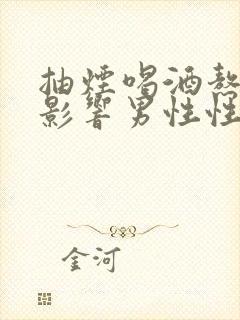 抽煙喝酒熬
影響男性性
金河